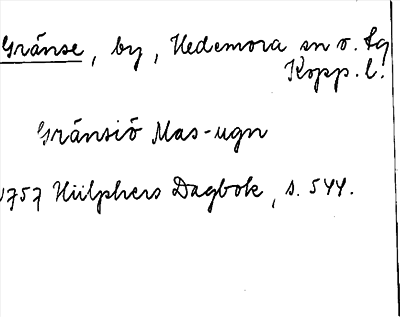 Gränse, by, Hedemora sn o. tg
Kopp. l.
Gränsiö Mas-ugn
1757 Hülphers Dagbok, s. 544.